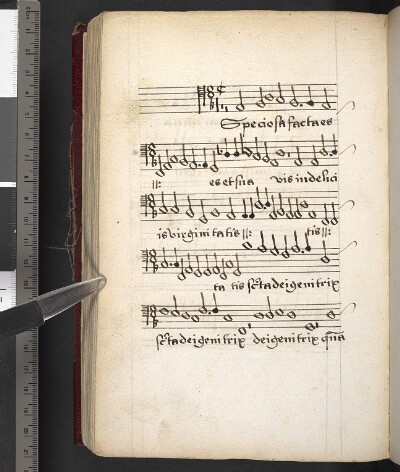 Speciosa facta es
es et sua vis in delici
is virginitatis tis
ta tis sc̄ta dei genitrix
sc̄ta dei genitrix dei genitrix